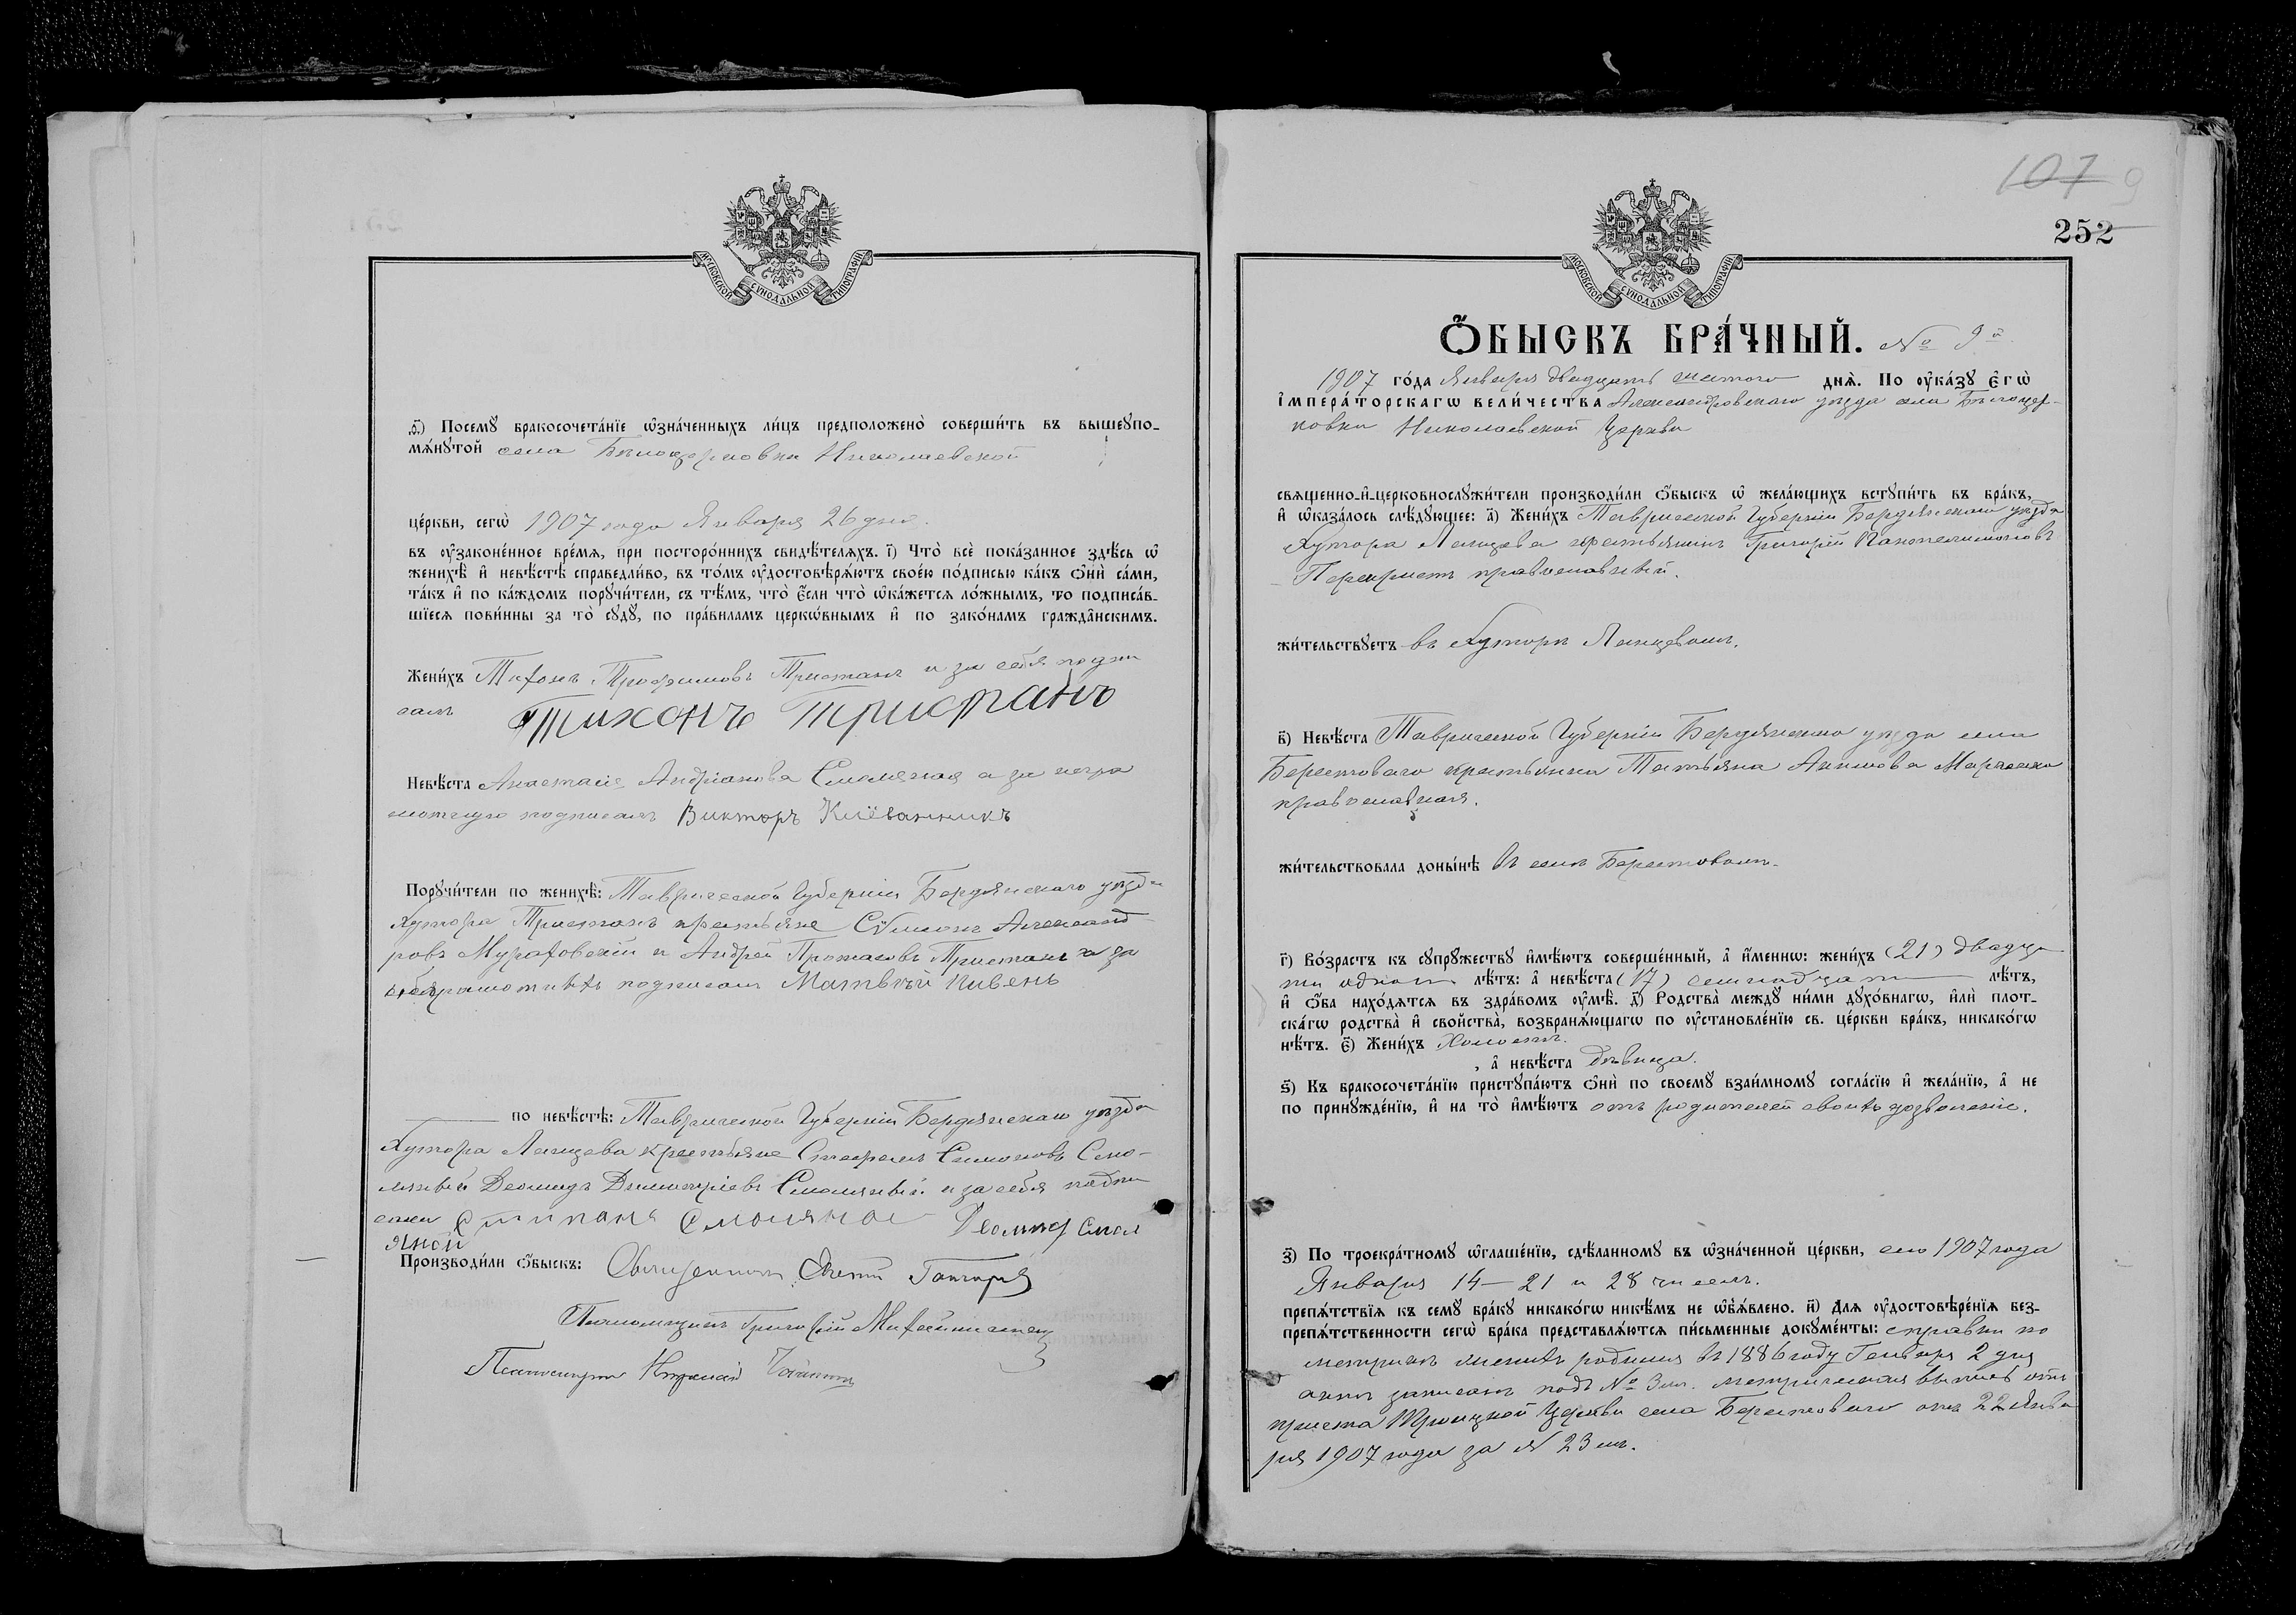 МОСКОВСКОЙ СѴНОДАЛЬНОЙ ТИПОГРАФІИ
ѳ҃) Посемꙋ бракосочета́нїе ѡ҆зна́ченныхъ ли́цъ предположено̀ соверши́ть въ вышеꙋпо-
мѧ́нꙋтой села Бѣлоцерковки Николаевской
це́ркви, сегѡ̀ 1907 года Января 26 дня.
въ ᲂу҆законе́нное вре́мѧ, при посторо́ннихъ свидѣ́телѧхъ. і҃) Что̀ всѐ пока́занное здѣ́сь ѡ҆
женихѣ̀ и҆ невѣ́стѣ справедли́во, въ то́мъ ᲂу҆достовѣрѧ́ютъ свое́ю по́дписью ка́къ ѻ҆нѝ са́ми,
та́къ и҆ по ка́ждомъ порꙋчи́тели, съ тѣ́мъ, что̀ є҆́сли что̀ ѡ҆ка́жетсѧ ло́жнымъ, то подписа́в-
шїесѧ пови́нны за то̀ сꙋдꙋ̀, по пра́виламъ церкѡ́внымъ и҆ по зако́намъ гражда̑нскимъ.
Жени́хъ Тихонъ Трофимовъ Тристанъ и за себя подпи
салъ Тихонъ Тристанъ
Невѣ́ста Анастасія Андріанова Смоляная а за негра
мотную подписалъ Викторъ
Порꙋчи́тели по женихѣ̀: Таврической Губерніи Бердянскаго уѣзда
хутора Тристанъ крестьяне Симонъ Александ
ровъ Мураховскій и Андрей Протасовъ Тристанъ а за
неграмотныхъ подписалъ Матвѣй Пивень
по невѣ́стѣ: Таврической Губерніи Бердянскаго уѣзда
Хутора Ланцева крестьяне Стефанъ Симоновъ Смо-
ляный Деомидъ Димитріевъ Смоляный и за себя подпи
сали Стипанъ Смоляной Деомид Смол
яной
Производи́ли ѻ҆́быскъ: Священникъ
Псаломщикъ Григорій
Псаломщикъ
107 9
252
МОСКОВСКОЙ СѴНОДАЛЬНОЙ ТИПОГРАФІИ
Ѻ҆́БЫСКЪ БРА́ЧНЫЙ. № 9й
1907 го́да Января двадцать шестого днѧ̀. По ᲂу҆ка́зꙋ є҆гѡ̀
і҆мпера́торскагѡ вели́чества Александровскаго уѣзда села Бѣлоцер-
ковки Николаевской Церкви
свѧщенно-и҆-церковнослꙋжи́тели производи́ли ѻ҆́быскъ ѡ҆ жела́ющихъ встꙋпи́ть въ бра́къ,
и҆ ѡ҆каза́лось слѣ́дꙋющее: а҃) Жени́хъ Таврической Губерніи Бердянскаго уѣзда
Хутора Ланцева крестьянинъ Григорій Пантелимоновъ
Перехристъ православный.
жи́тельствꙋетъ въ Хуторѣ Ланцевомъ.
в҃) Невѣ́ста Таврической Губерніи Бердянскаго уѣзда села
Берестоваго крестьянка Татьяна Акимова Марченко
православная.
жи́тельствовала доны́нѣ въ селѣ Берестовомъ.
г҃) Во́зрастъ къ сꙋпрꙋ́жествꙋ и҆мѣ́ютъ соверше́нный, а҆ и҆́меннѡ: жени́хъ (21) двадца
ти одного лѣ́тъ: а҆ невѣ́ста (17) семнадцати лѣ́тъ,
и҆ ѻ҆́ба нахо́дѧтсѧ въ здра́вомъ ᲂу҆мѣ̀. д҃) Родства̀ междꙋ̀ ни́ми дꙋхо́внагѡ, и҆лѝ плот-
ска́гѡ родства̀ и҆ сво́йства̀, возбранѧ́ющагѡ по ᲂу҆становле́нїю св. це́ркви бра́къ, никако́гѡ
нѣ́тъ. є҃) Жени́хъ Холостъ.
, а҆ невѣ́ста дѣвица.
ѕ҃) Къ бракосочета́нїю пристꙋпа́ютъ ѻ҆нѝ по своемꙋ̀ взаи́мномꙋ согла́сїю и҆ жела́нїю, а҆ не
по принꙋжде́нїю, и҆ на то̀ и҆мѣ́ютъ отъ родителей своихъ дозволеніе.
з҃) По троекра́тномꙋ ѡ҆глаше́нїю, сдѣ́ланномꙋ въ ѡ҆зна́ченной це́ркви, сего 1907 года
Января 14 — 21 и 28 чиселъ.
препѧ́тствїѧ къ семꙋ̀ бра́кꙋ никако́гѡ никѣ́мъ не ѡ҆б̾ѧ́влено. и҃) Длѧ ᲂу҆достовѣре́нїѧ без-
препѧ́тственности сегѡ̀ бра́ка представлѧ́ютсѧ пи́сьменные докꙋме́нты: справки по
метрикѣ женихъ родился въ 1886 году Генваря 2 дня
актъ записанъ подъ № 3мъ. метрическая выпись отъ
причта Троицкой Церкви села Берестоваго отъ 22 Янва
ря 1907 года за № 23мъ.